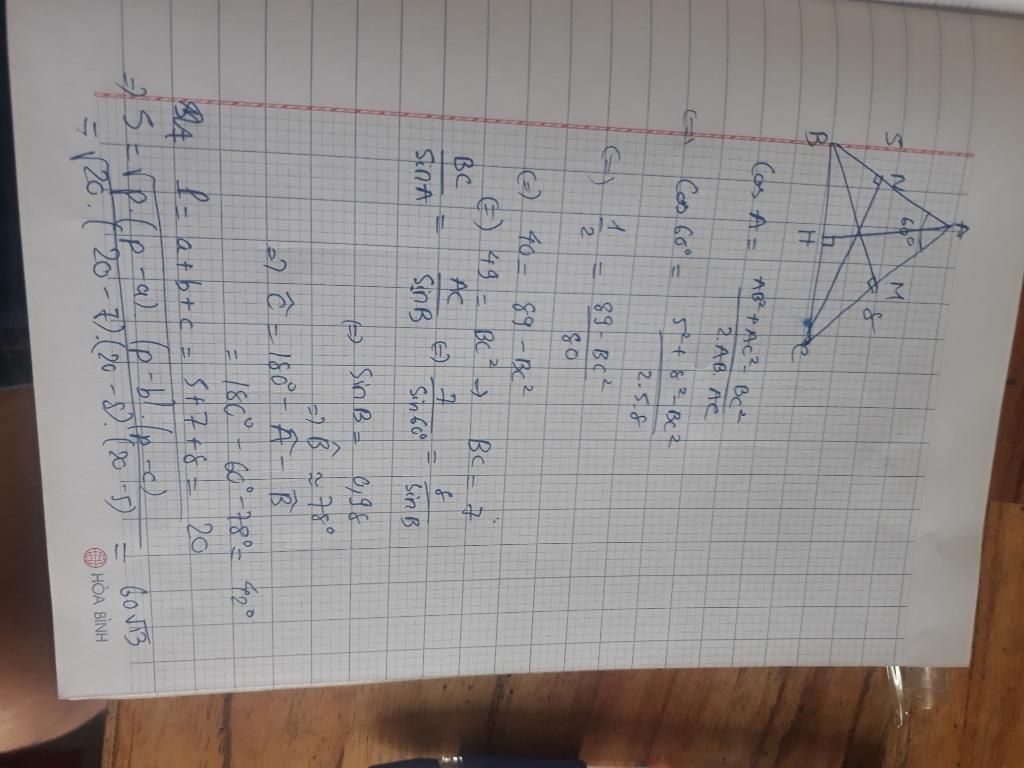 A
60°
5
N
M
8
B
H
C
Cos A = AB² + AC² - BC² / 2.AB.AC
(=) Cos 60° = 5² + 8² - BC² / 2.5.8
(=) 1/2 = 89 - BC² / 80
(=) 40 = 89 - BC²
(=) 49 = BC² => BC = 7
BC / Sin A = AC / Sin B (=) 7 / Sin 60° = 8 / Sin B
(=) Sin B = 0,98
=> B̂ ≈ 78°
=> Ĉ = 180° - Â - B̂
= 180° - 60° - 78° = 42°
P = a + b + c = 5 + 7 + 8 = 20
=> S = √p.(p - a).(p - b).(p - c)
= √20.(20 - 7).(20 - 8).(20 - 5) = 60√13
HÒA BÌNH